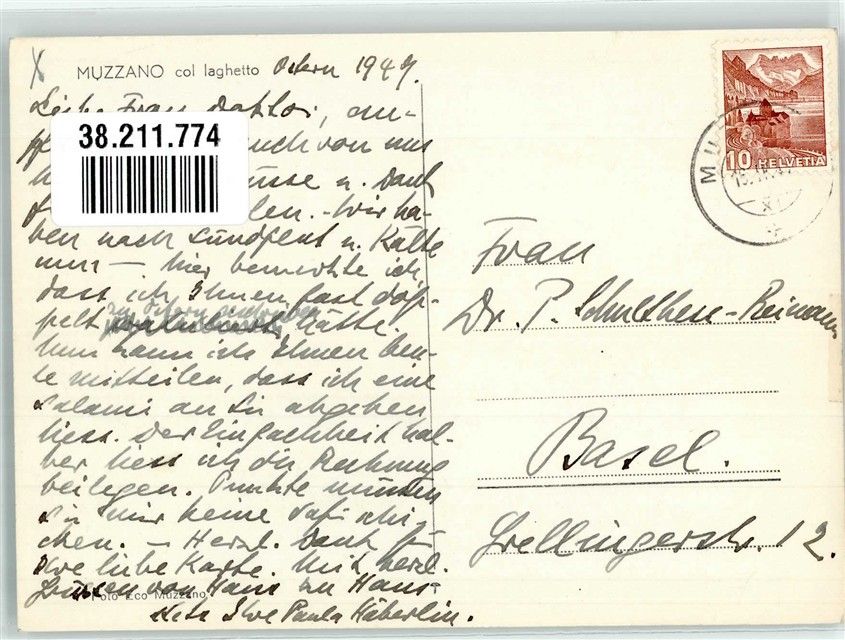 MUZZANO col laghetto Ostern 1947.
Liebe Frau Doktor, em-
auch von uns
u. Dank
len. - Wir ha-
ben nach u. Kälte
nun — hier bemerkte ich,
dass ich Ihnen fast dop-
pelt zu Ostern hätte.
Nun kann ich Ihnen heu-
te mitteilen, dass ich eine
Salami an Sie abgehen
liess. Der Einfachheit hal-
ber liess ich die Rechnung
beilegen. Punkte müssen
Sie mir keine dafür schi-
cken. — Herzl. Dank für
Ihre liebe Karte. Mit herzl.
Grüssen von Haus zu Haus
stets Ihre Paula Häberlin.
Foto Eco Muzzano
38.211.774
10 HELVETIA
MU
XI
Frau
Dr. P. Schulthess-Reimann
Basel.
Grellingerstr. 12.